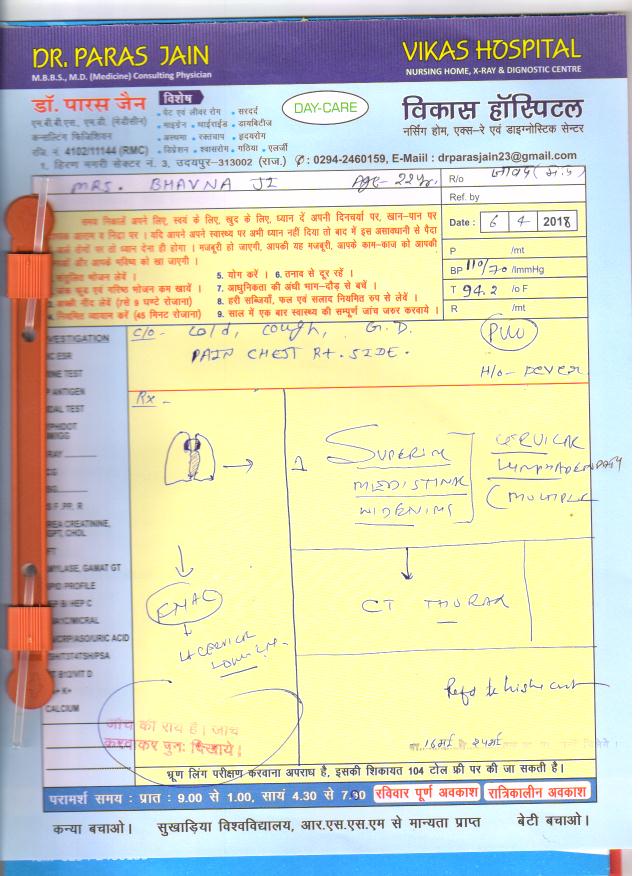 DR. PARAS JAIN
M.B.B.S., M.D. (Medicine) Consulting Physician
VIKAS HOSPITAL
NURSING HOME, X-RAY & DIGNOSTIC CENTRE
डॉ. पारस जैन
एम.बी.बी.एस., एम.डी. (मेडीसीन)
कन्सल्टिंग फिजिशियन
रजि. नं. 4102/11144 (RMC)
विशेष
• पेट एवं लीवर रोग • सरदर्द
• माइग्रेन • थाईराईड • डायबिटीज
• अस्थमा • रक्तचाप • हृदयरोग
• डिप्रेशन • श्वासरोग • गठिया • एलर्जी
DAY-CARE
विकास हॉस्पिटल
नर्सिंग होम, एक्स-रे एवं डाइग्नोस्टिक सेन्टर
1, हिरण मगरी सेक्टर नं. 3, उदयपुर-313002 (राज.) ✆: 0294-2460159, E-Maiil : drparasjain23@gmail.com
MRS. BHAVNA JI Age - 22 yr.
R/o जावद (म.प्र)
Ref. by
Date : 6 4 2018
P /mt
BP 110/70 /ImmHg
T 94.2 /o F
R /mt
समय निकाले अपने लिए, स्वयं के लिए, खुद के लिए, ध्यान दें अपनी दिनचर्या पर, खान-पान पर
आराम व निद्रा पर । यदि आपने अपने स्वास्थ्य पर अभी ध्यान नहीं दिया तो बाद में इस असावधानी से पैदा
रोगों पर तो ध्यान देना ही होगा । मजबूरी हो जाएगी, आपकी यह मजबूरी, आपके काम-काज को आपकी
और आपके भविष्य को खा जाएगी ।
भोजन लेवें । 5. योग करें । 6. तनाव से दूर रहें ।
फूड एवं गरिष्ठ भोजन कम खायें । 7. आधुनिकता की अंधी भाग-दौड़ से बचें ।
नींद लेवें (रसे 9 घण्टे रोजाना) 8. हरी सब्जियाँ, फल एवं सलाद नियमित रुप से लेवें ।
4. नियमित व्यायाम करें (45 मिनट रोजाना) 9. साल में एक बार स्वास्थ्य की सम्पूर्ण जांच जरुर करवाये ।
C/o - Cold, Cough, G.D.
PAIN CHEST Rt. SIDE.
PUO
H/o - FEVER
VESTIGATION
ESR
TEST
ANTIGEN
TEST
RAY
PR
CREATININE,
CHOL
MYLASE, GAMAT GT
PROFILE
B/ HEP C
MICRAL
CRP/ASO/URIC ACID
B12/VIT D
K+
CALCIUM
Rx -
1 SUPERIOR
MEDISTINAL
WIDENING
CERVICAL
LYMPHADENOPATHY
( MULTIPLE
FNAC
CERVICAL
CT THORAX
जाँच की राय है। जांच
करवाकर पुनः दिखाये।
भ्रूण लिंग परीक्षण करवाना अपराध है, इसकी शिकायत 104 टोल फ्री पर की जा सकती है।
परामर्श समय : प्रातः 9.00 से 1.00, सायं 4.30 से 7.30 रविवार पूर्ण अवकाश रात्रिकालीन अवकाश
कन्या बचाओ। सुखाड़िया विश्वविद्यालय, आर.एस.एस.एम से मान्यता प्राप्त बेटी बचाओ।